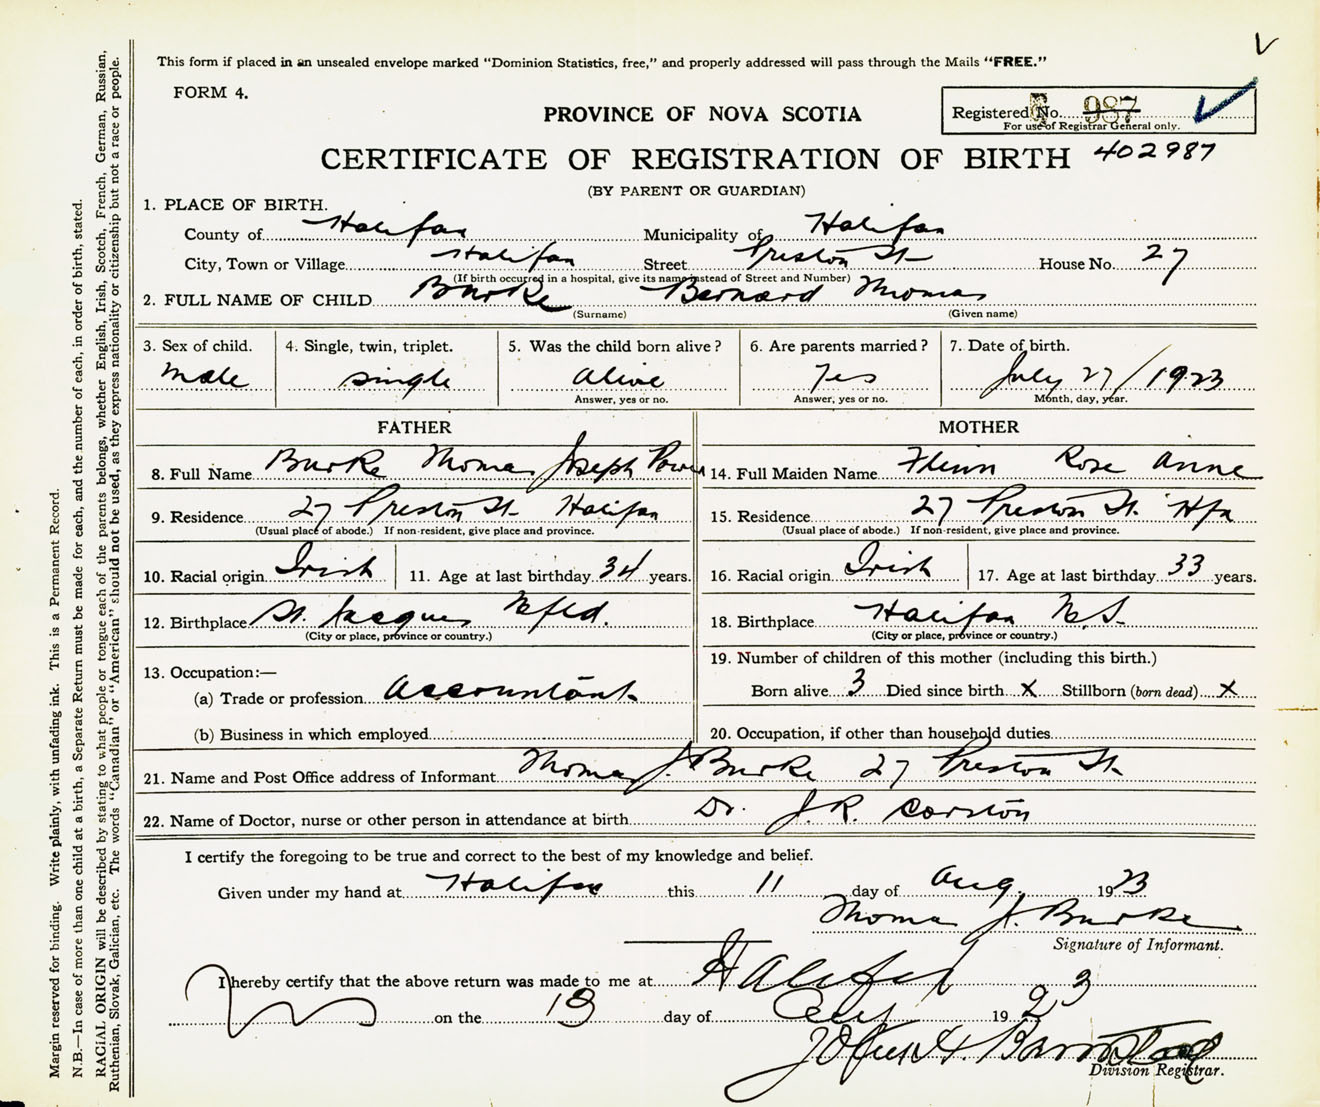 This form if placed in an unsealed envelope marked "Dominion Statistics, free," and properly addressed will pass through the Mails "FREE."
FORM 4.
PROVINCE OF NOVA SCOTIA
Registered No. 987
For use of Registrar General only.
CERTIFICATE OF REGISTRATION OF BIRTH 402987
(BY PARENT OR GUARDIAN)
1. PLACE OF BIRTH.
County of Halifax Municipality of Halifax
City, Town or Village Halifax Street Preston St House No. 27
(If birth occurred in a hospital, give its name instead of Street and Number)
2. FULL NAME OF CHILD Burke Bernard Thomas
(Surname) (Given name)
3. Sex of child. 4. Single, twin, triplet. 5. Was the child born alive? 6. Are parents married? 7. Date of birth.
Male single Alive Yes July 27/1923
Answer, yes or no. Answer, yes or no. Month, day, year.
FATHER MOTHER
8. Full Name Burke Thomas Joseph Power 14. Full Maiden Name Flinn Rose Anne
9. Residence 27 Preston St. Halifax 15. Residence 27 Preston St. Hfx
(Usual place of abode.) If non-resident, give place and province. (Usual place of abode.) If non-resident, give place and province.
10. Racial origin Irish 11. Age at last birthday 34 years. 16. Racial origin Irish 17. Age at last birthday 33 years.
12. Birthplace St. Jacques Nfld. 18. Birthplace Halifax N.S.
(City or place, province or country.) (City or place, province or country.)
13. Occupation:— 19. Number of children of this mother (including this birth.)
(a) Trade or profession Accountant Born alive 3 Died since birth X Stillborn (born dead) X
(b) Business in which employed 20. Occupation, if other than household duties
21. Name and Post Office address of Informant Thomas J. Burke 27 Preston St.
22. Name of Doctor, nurse or other person in attendance at birth Dr. J. R. Corston
I certify the foregoing to be true and correct to the best of my knowledge and belief.
Given under my hand at Halifax this 11 day of Aug. 1923
Thomas J. Burke
Signature of Informant.
I hereby certify that the above return was made to me at Halifax
on the 13 day of 1923
Division Registrar.
Margin reserved for binding. Write plainly, with unfading ink. This is a Permanent Record.
N.B.—In case of more than one child at a birth, a Separate Return must be made for each, and the number of each, in order of birth, stated.
RACIAL ORIGIN will be described by stating to what people or tongue each of the parents belongs, whether English, Irish, Scotch, French, German, Russian,
Ruthenian, Slovak, Galician, etc. The words "Canadian" or "American" should not be used, as they express nationality or citizenship but not a race or people.